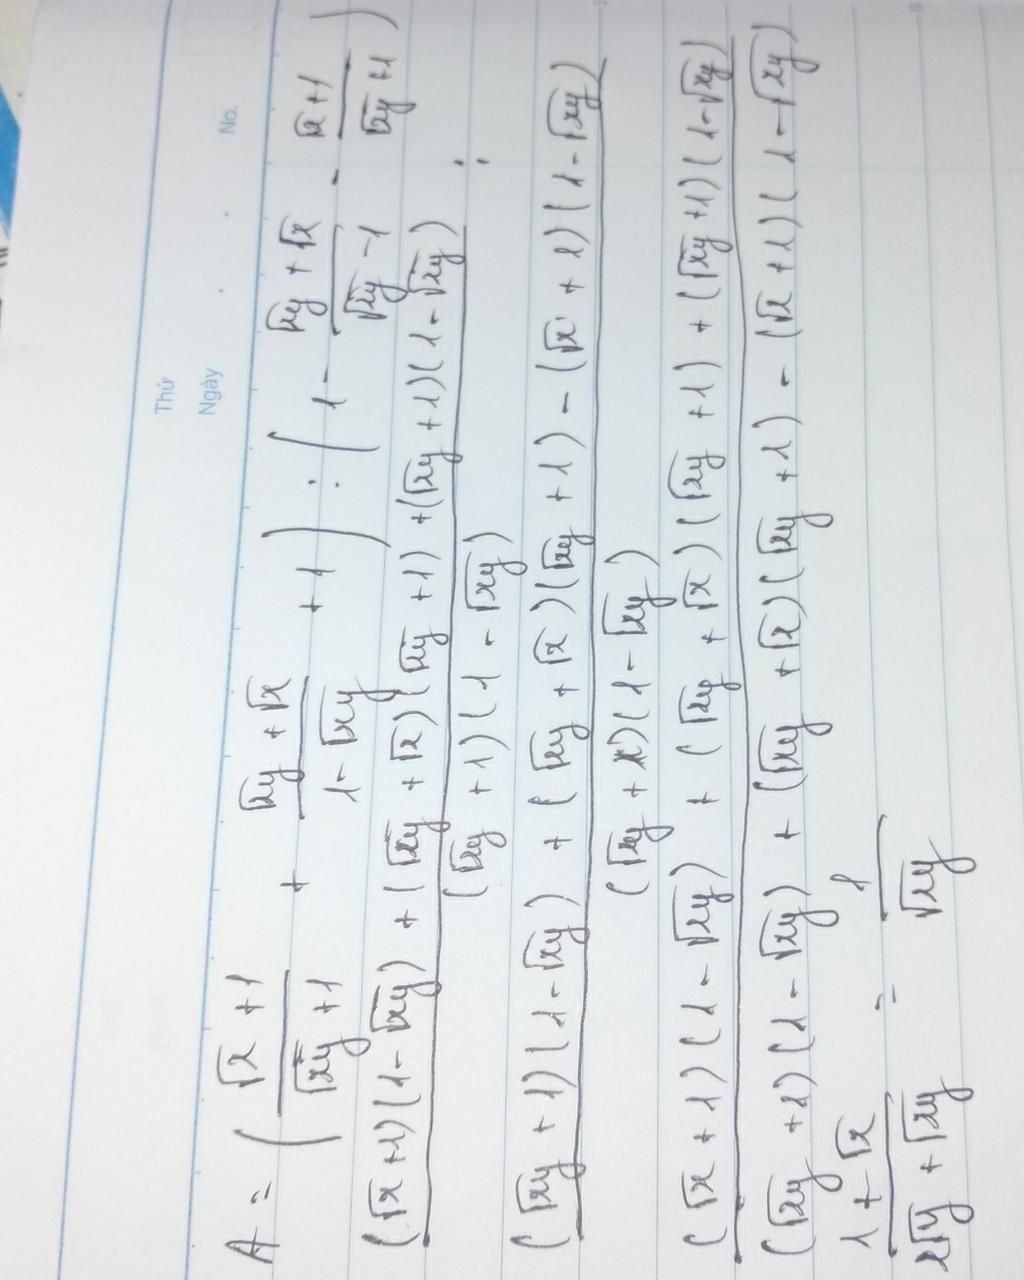 Thứ
Ngày
No.
A = ( (√x + 1)/(√xy + 1) + (√xy + √x)/(1 - √xy) + 1 ) : ( 1 - (√xy + √x)/(√xy - 1) - (√x + 1)/(√xy + 1) )
(√x + 1)(1 - √xy) + (√xy + √x)(√xy + 1) + (√xy + 1)(1 - √xy) :
(√xy + 1)(1 - √xy)
(√xy + 1)(1 - √xy) + (√xy + √x)(√xy + 1) - (√x + 1)(1 - √xy)
(√xy + x)(1 - √xy)
(√x + 1)(1 - √xy) + (√xy + √x)(√xy + 1) + (√xy + 1)(1 - √xy)
(√xy + 1)(1 - √xy) + (√xy + √x)(√xy + 1) - (√x + 1)(1 - √xy)
(1 + √x)/(x√y + √xy) = 1/√xy